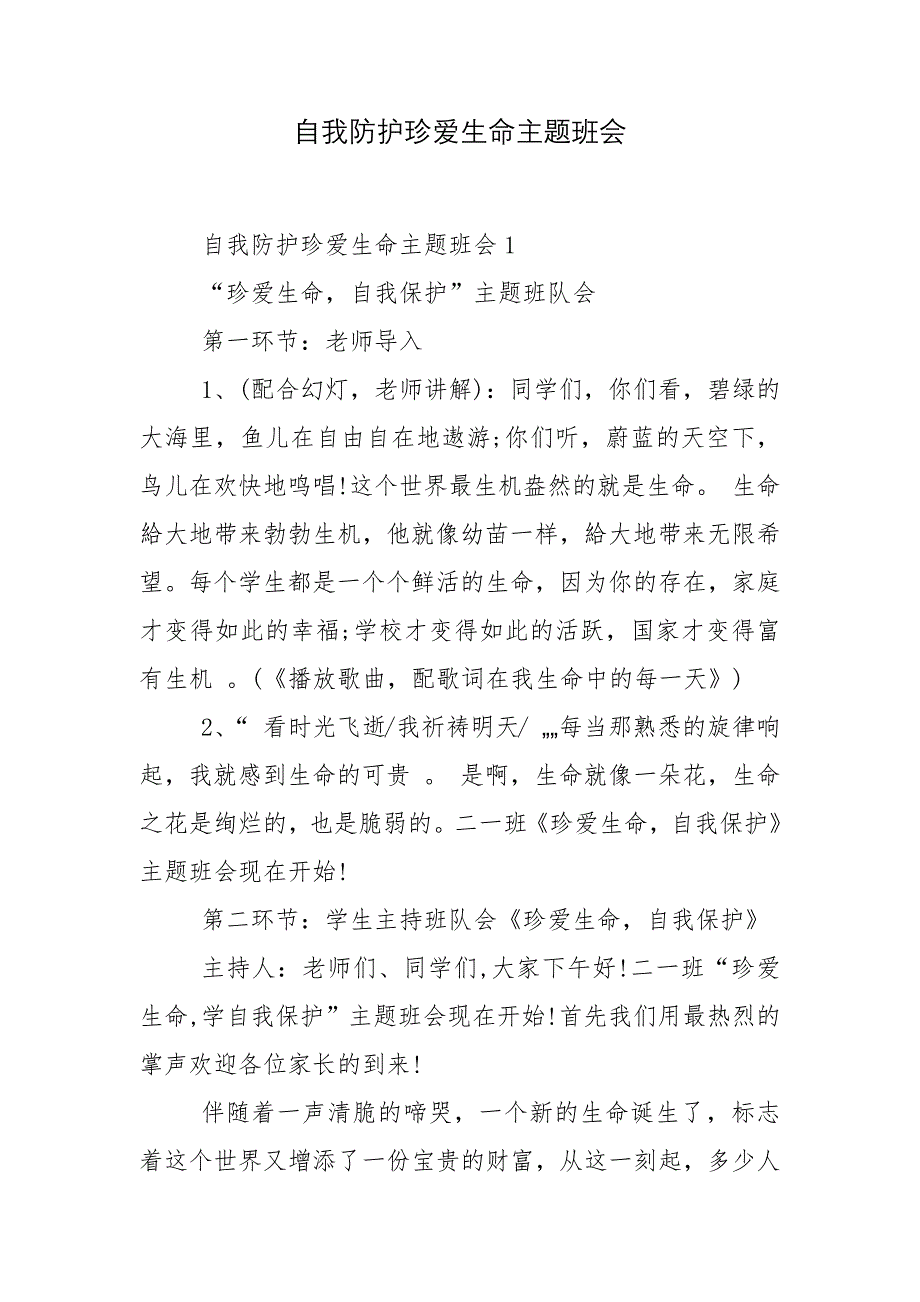 自我防护珍爱生命主题班会
自我防护珍爱生命主题班会1
“珍爱生命，自我保护”主题班队会
第一环节：老师导入
1、(配合幻灯，老师讲解)：同学们，你们看，碧绿的
大海里，鱼儿在自由自在地遨游;你们听，蔚蓝的天空下，
鸟儿在欢快地鸣唱!这个世界最生机盎然的就是生命。 生命
給大地带来勃勃生机，他就像幼苗一样，給大地带来无限希
望。每个学生都是一个个鲜活的生命，因为你的存在，家庭
才变得如此的幸福;学校才变得如此的活跃，国家才变得富
有生机 。(《播放歌曲，配歌词在我生命中的每一天》)
2、“ 看时光飞逝/我祈祷明天/ „„每当那熟悉的旋律响
起，我就感到生命的可贵 。 是啊，生命就像一朵花，生命
之花是绚烂的，也是脆弱的。二一班《珍爱生命，自我保护》
主题班会现在开始!
第二环节：学生主持班队会《珍爱生命，自我保护》
主持人：老师们、同学们,大家下午好!二一班“珍爱
生命,学自我保护”主题班会现在开始!首先我们用最热烈的
掌声欢迎各位家长的到来!
伴随着一声清脆的啼哭，一个新的生命诞生了，标志
着这个世界又增添了一份宝贵的财富，从这一刻起，多少人